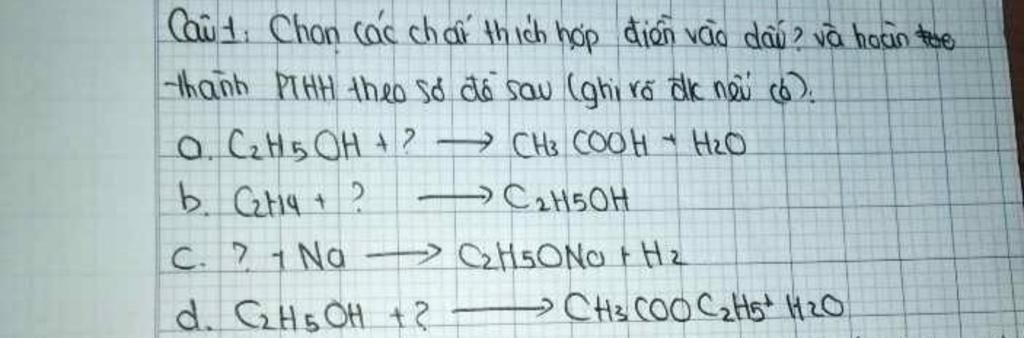 Câu 1: Chọn các chất thích hợp điền vào dấu ? và hoàn
thành PTHH theo sơ đồ sau (ghi rõ đk nếu có).
a. C2H5OH + ? → CH3COOH + H2O
b. C2H4 + ? → C2H5OH
c. ? + Na → C2H5ONa + H2
d. C2H5OH + ? → CH3COOC2H5 + H2O